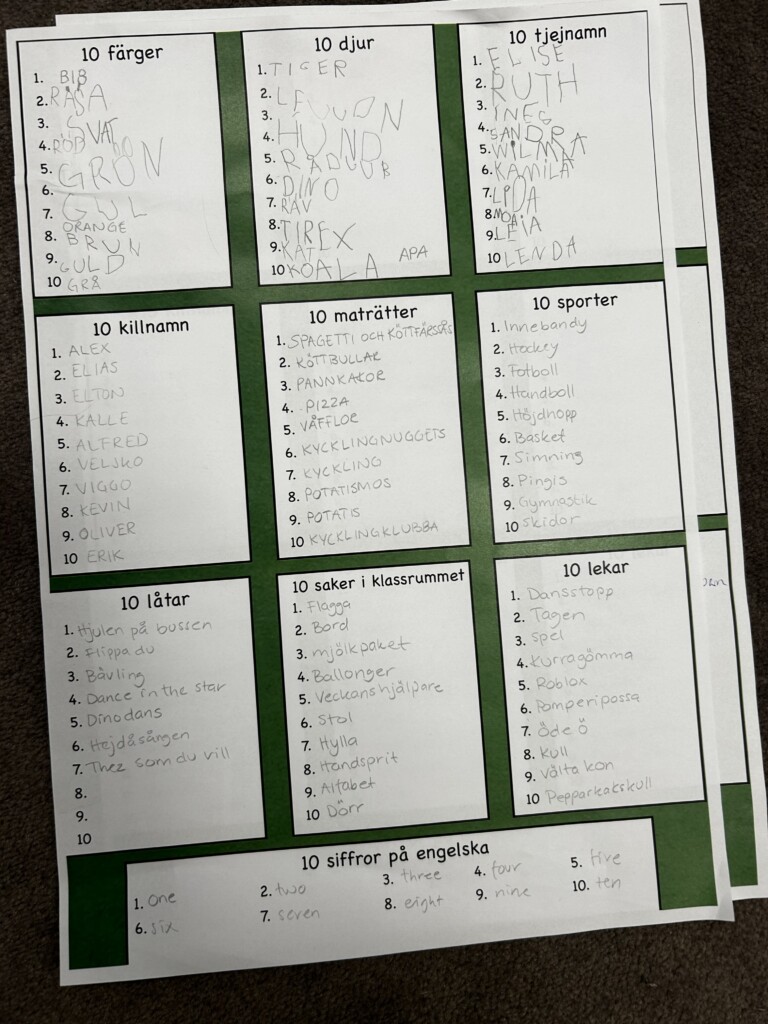 10 färger
1. BIB
2. RÅSA
3. SVAT
4. RÖD
5. GRÖN
6.
7. GUL
ORANGE
8. BRUN
9. GULD
10 GRÅ
10 djur
1. TIGER
2. LEUUON
3.
4. HUND
5. RÄDUUR
6. DINO
7. RÄV
8. TIREX
9. KAT
10 KOALA APA
10 tjejnamn
1. ELISE
2. RUTH
3. INEG
4. SANDRA
5. WILMA
6. KAMILA
7. LIDA
8. MOA
9. LEIA
10 LENDA
10 killnamn
1. ALEX
2. ELIAS
3. ELTON
4. KALLE
5. ALFRED
6. VELJKO
7. VIGGO
8. KEVIN
9. OLIVER
10 ERIK
10 maträtter
1. SPAGETTI OCH KÖTTFÄRSÅS
2. KÖTTBULLAR
3. PANNKAKOR
4. PIZZA
5. VÅFFLOR
6. KYCKLINGNUGGETS
7. KYCKLING
8. POTATISMOS
9. POTATIS
10 KYCKLINGKLUBBA
10 sporter
1. Innebandy
2. Hockey
3. Fotboll
4. Handboll
5. Höjdhopp
6. Basket
7. Simning
8. Pingis
9. Gymnastik
10 skidor
10 låtar
1. Hjulen på bussen
2. Flippa du
3. Båvling
4. Dance in the star
5. Dinodans
6. Hejdåsången
7. Thez som du vill
8.
9.
10
10 saker i klassrummet
1. Flagga
2. Bord
3. mjölkpaket
4. Ballonger
5. Veckans hjälpare
6. Stol
7. Hylla
8. Handsprit
9. Alfabet
10 Dörr
10 lekar
1. Dansstopp
2. Tagen
3. spel
4. Kurragömma
5. Roblox
6. Pomperipossa
7. Öde ö
8. Kull
9. Välta kon
10 Pepparkakskull
10 siffror på engelska
1. one
2. two
3. three
4. four
5. five
6. six
7. seven
8. eight
9. nine
10. ten